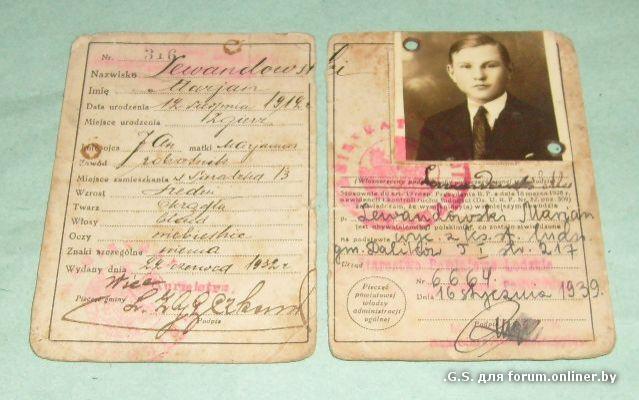 Nr. 316
Nazwisko Lewandowski
Imię Marjan
Data urodzenia 12 sierpnia 1912 r
Miejsce urodzenia Zgierz
Imię ojca Jan matki Marjanna
Zawód robotnik
Miejsce zamieszkania 13
Wzrost średni
Twarz okrągła
Włosy blond
Oczy niebieskie
Znaki szczególne niema
Wydany dnia 22 czerwca 1932 r
Pieczęć gminy
Podpis
(Własnoręczny podpis
Stosownie do art. 18 rozp. Prezydenta R. P. z dnia 16 marca 1928 r.
o ewidencji i kontroli ruchu ludności (Dz. U. R. P. Nr. 32, poz. 309)
zaświadczam, że wymieniony w niniejszym dowodzie
p. Lewandowski Marjan
jest obywatelem polskim, co zostało stwierdzone
na podstawie wyc. z ks. st. ludn.
gm. Dalików T I str. 217
Urząd
Nr. 6664
Dnia 16 stycznia 1939.
Pieczęć
powiatowej
władzy
administracji
ogólnej
Podpis
.G.S. для forum.onliner.by